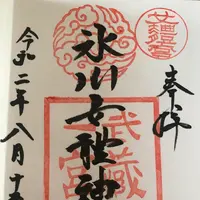 奉拝
氷川女體神
武蔵
一宮
令和二年八月十五